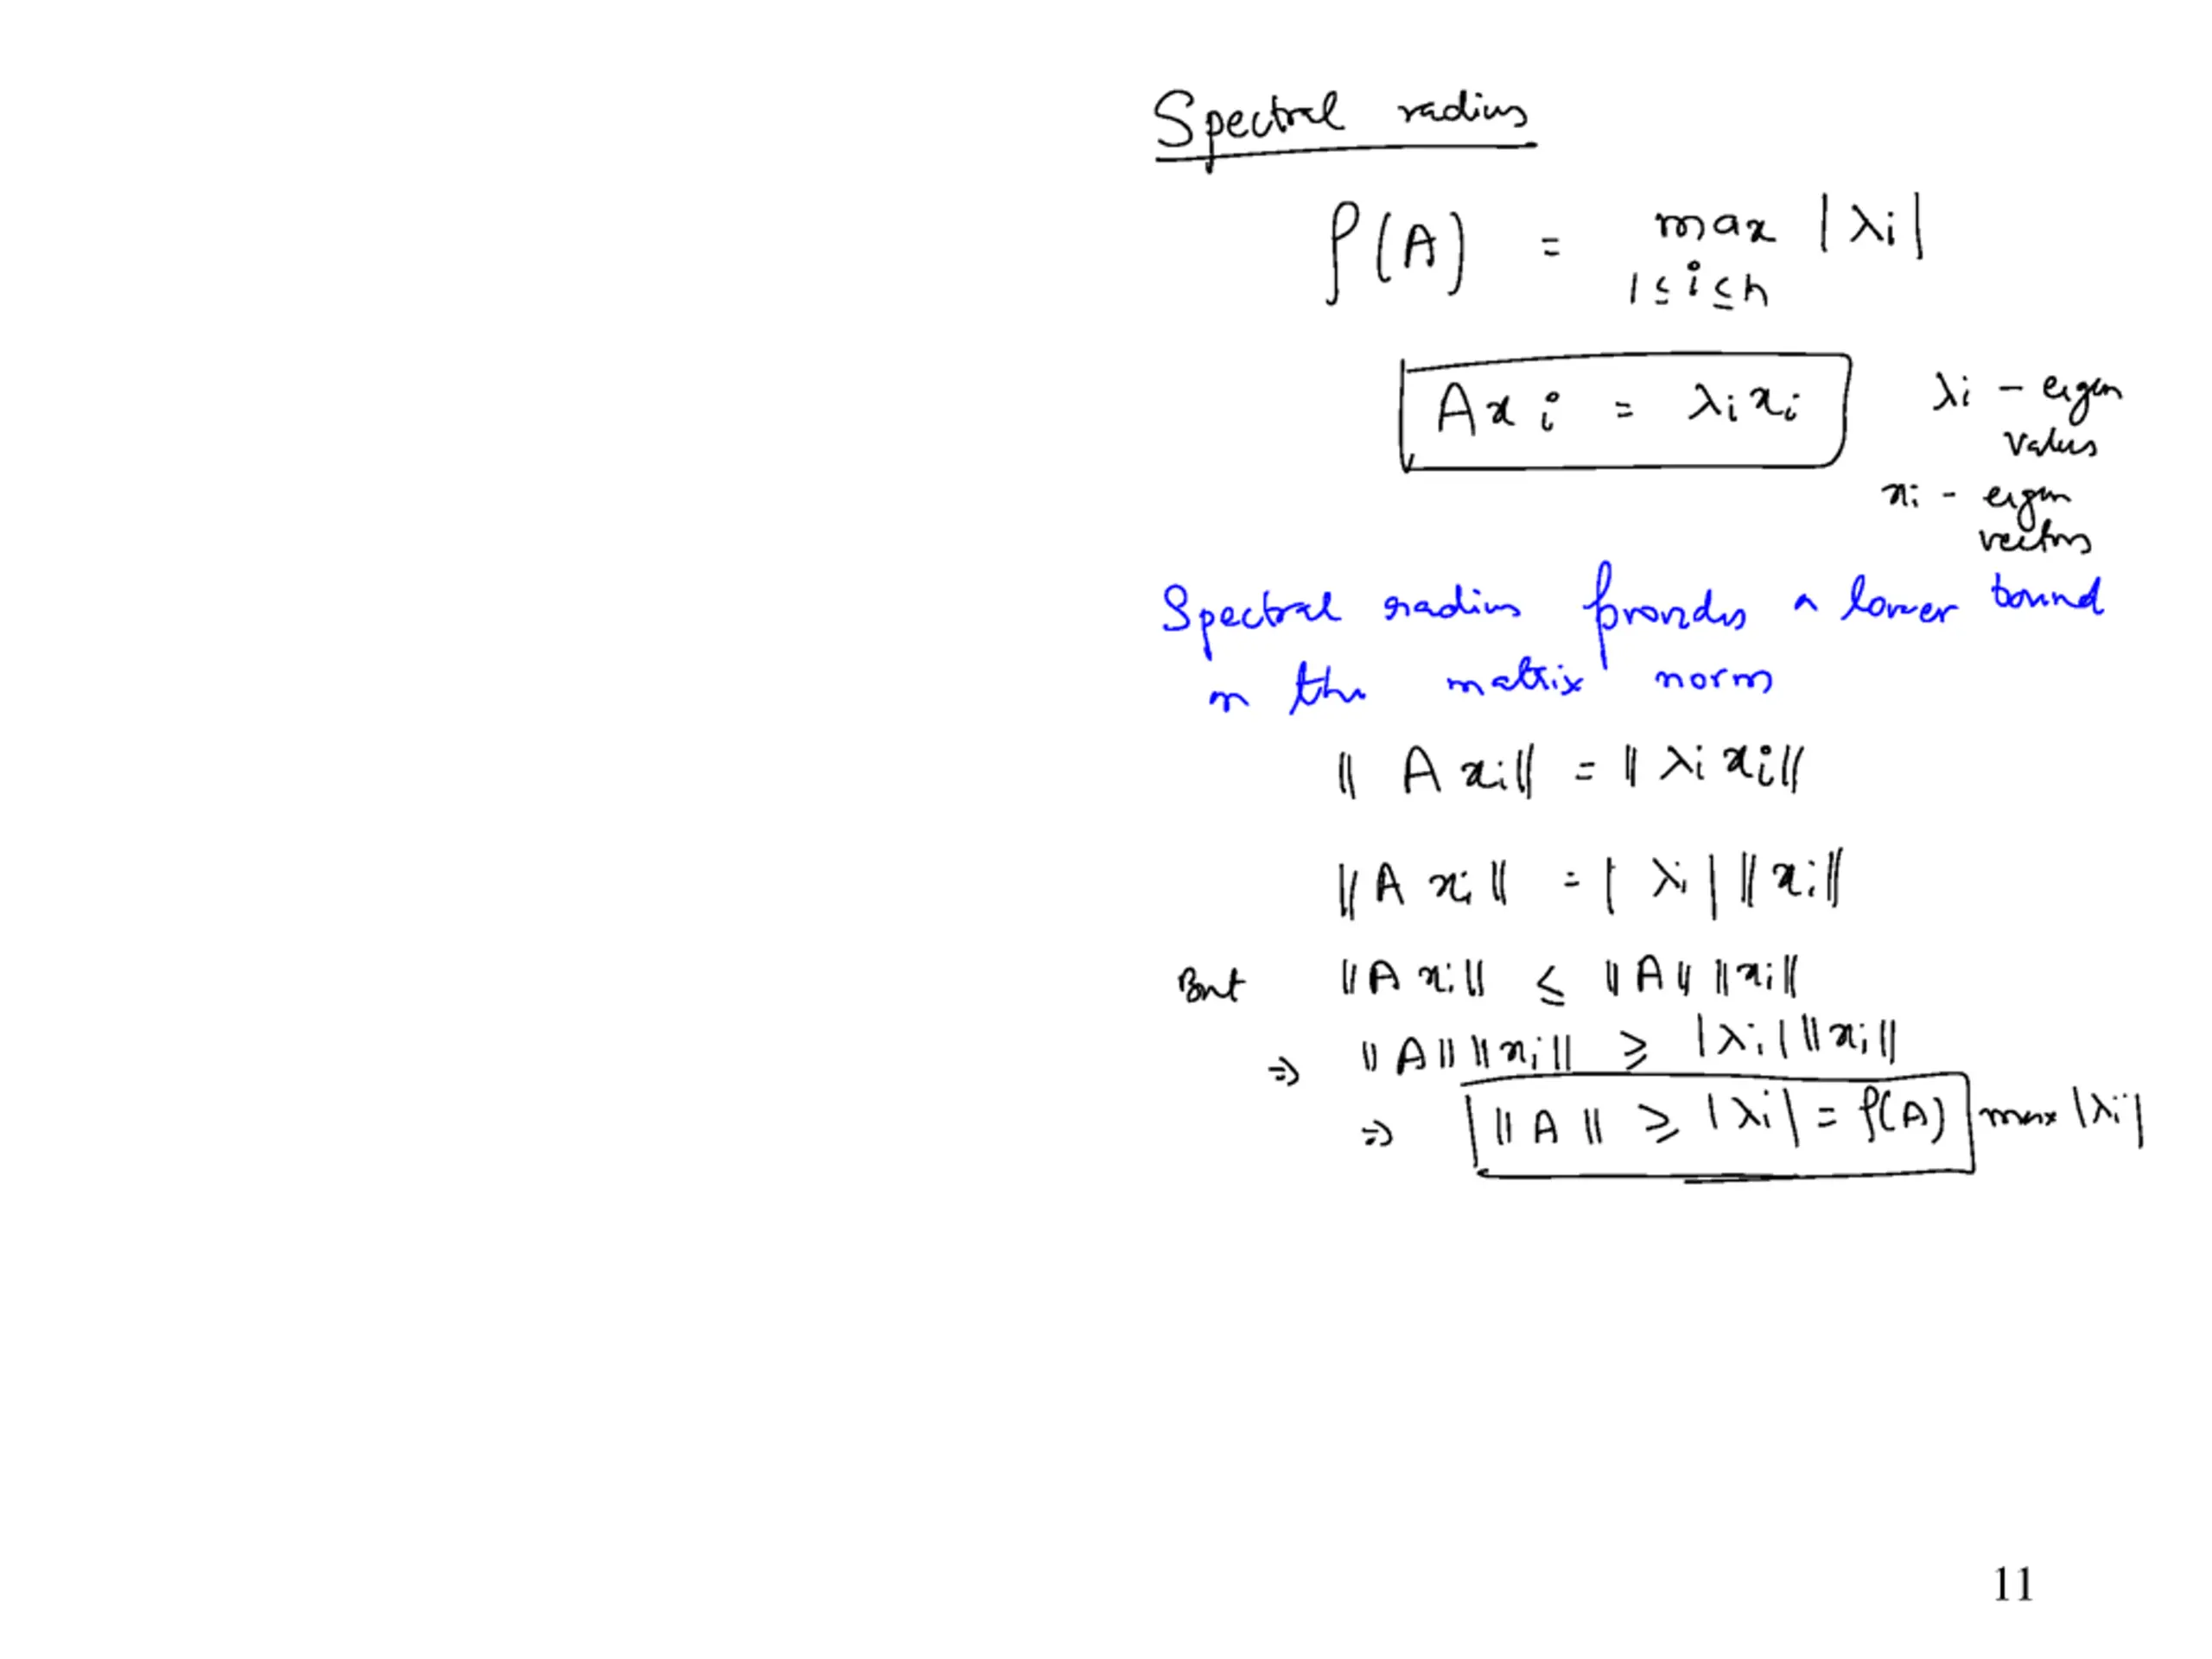 Spectral radius
ρ(A) = max |λi|
1 ≤ i ≤ n
A xi = λi xi
λi - eigen
values
xi - eigen
vectors
Spectral radius provides a lower bound
on the matrix norm
|| A xi || = || λi xi ||
|| A xi || = | λi | || xi ||
But || A xi || ≤ || A || || xi ||
⇒ || A || || xi || ≥ | λi | || xi ||
⇒ || A || ≥ | λi | = ρ(A) max |λi|
11